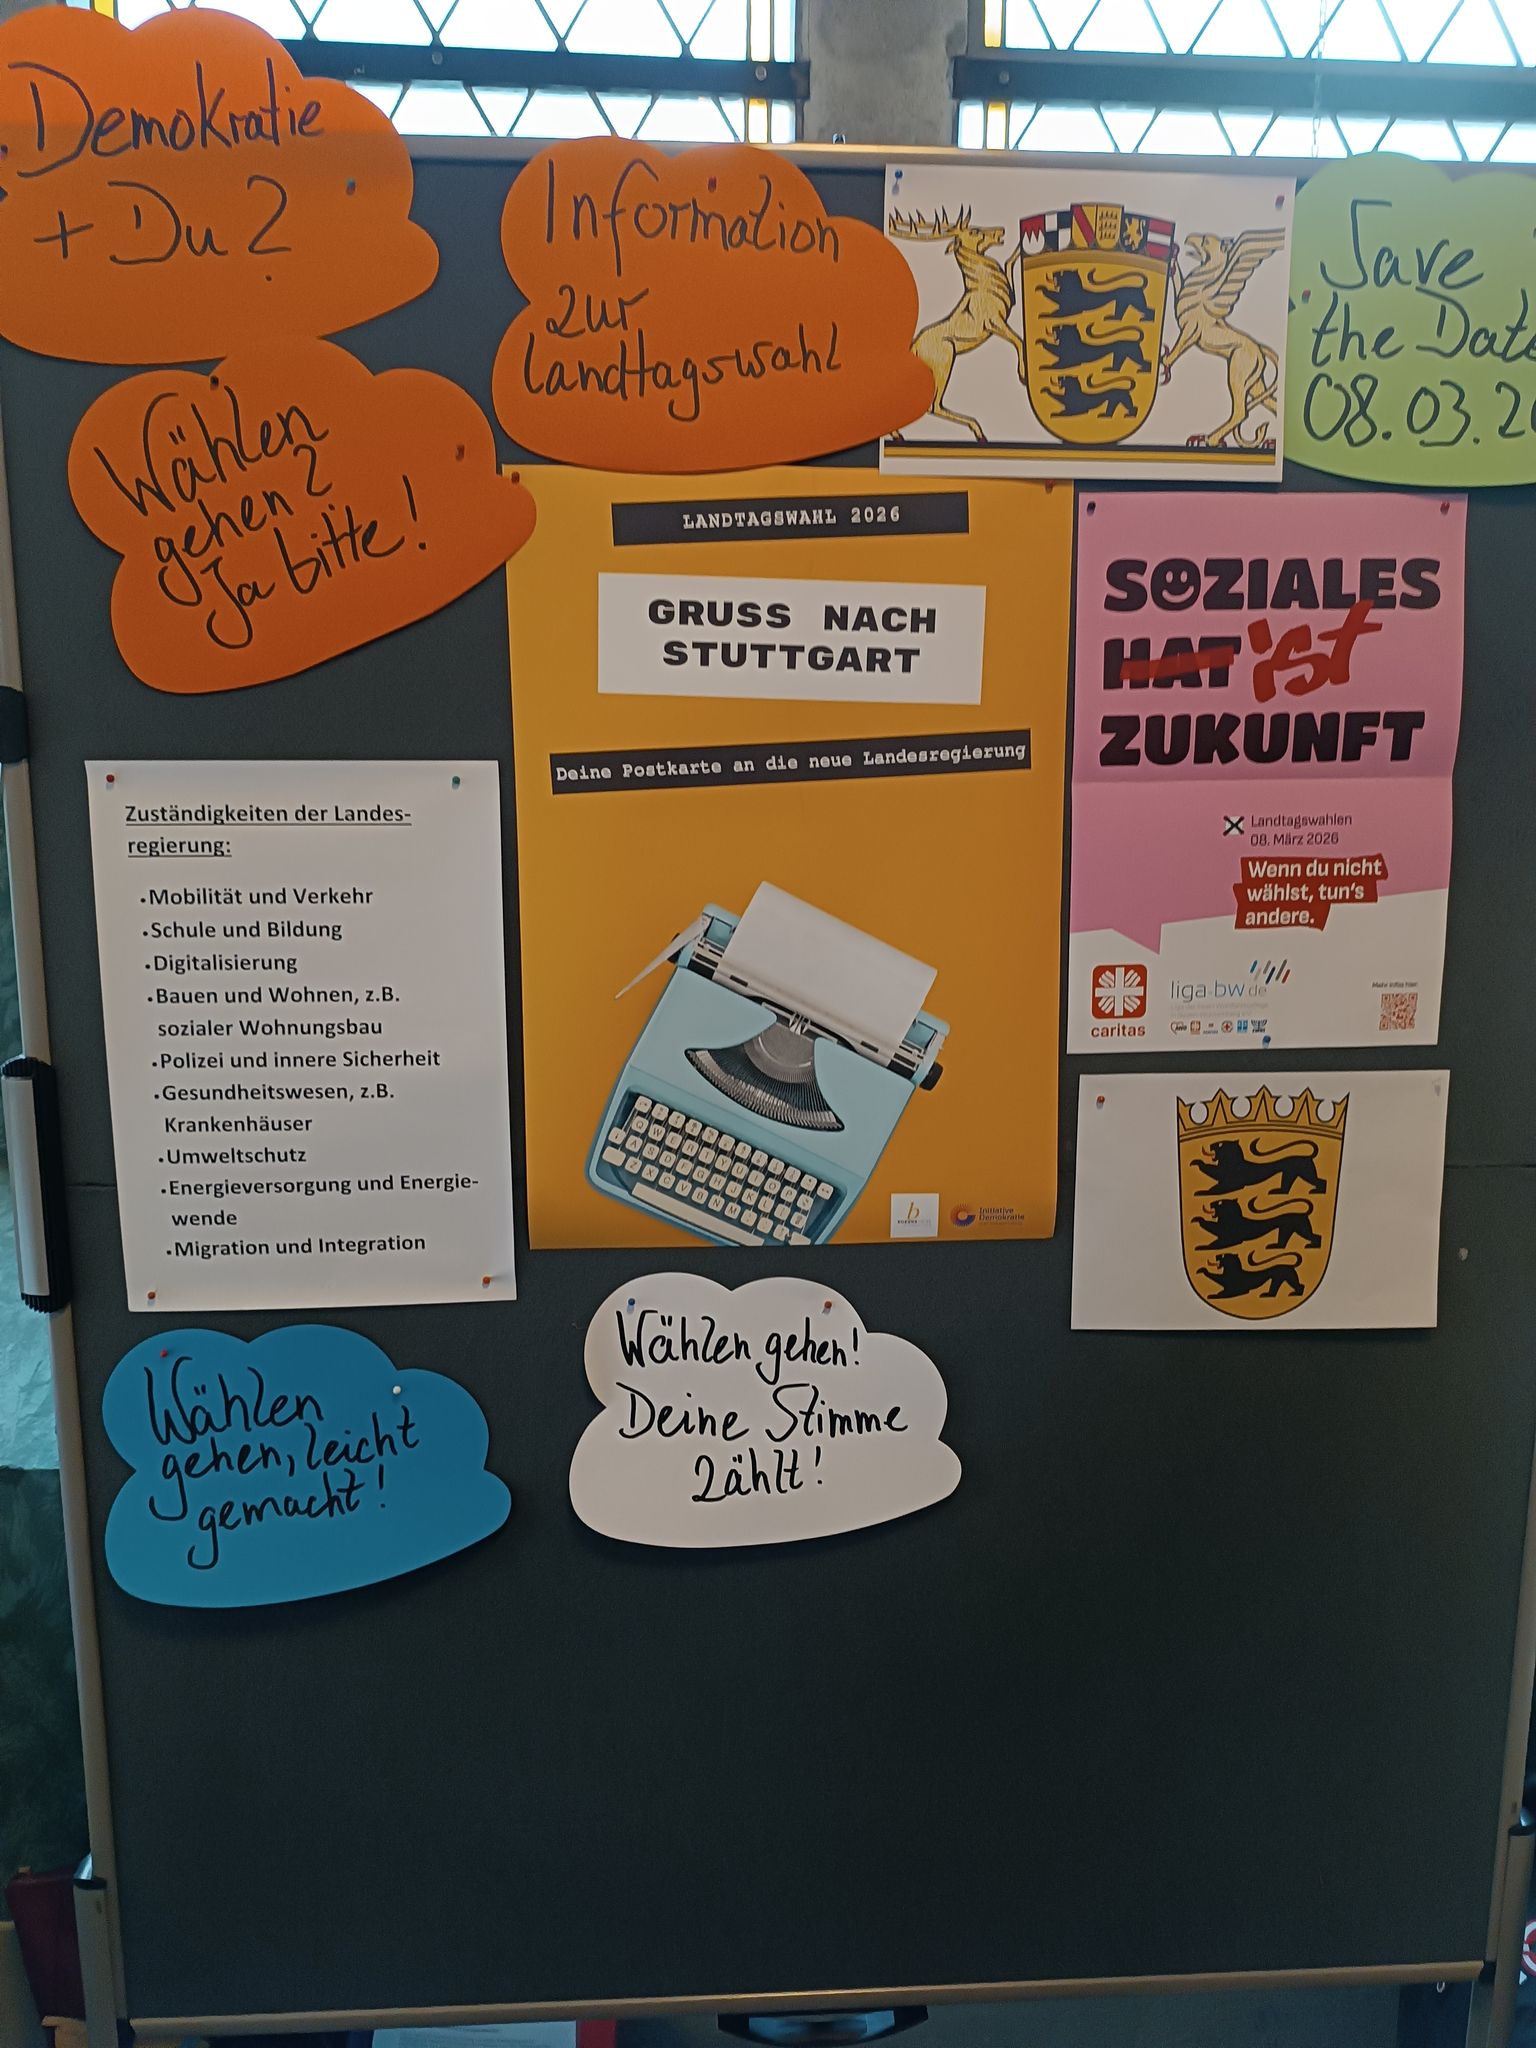 Demokratie
+ Du?
Wählen
gehen?
Ja bitte!
Information
zur
Landtagswahl
Save
the Date
08.03.2
LANDTAGSWAHL 2026
GRUSS NACH
STUTTGART
Deine Postkarte an die neue Landesregierung
Initiative
Demokratie
SOZIALES
HAT ist
ZUKUNFT
Landtagswahlen
08. März 2026
Wenn du nicht
wählst, tun's
andere.
caritas
liga-bw.de
Mehr Infos hier:
Zuständigkeiten der Landes-
regierung:
• Mobilität und Verkehr
• Schule und Bildung
• Digitalisierung
• Bauen und Wohnen, z.B.
sozialer Wohnungsbau
• Polizei und innere Sicherheit
• Gesundheitswesen, z.B.
Krankenhäuser
• Umweltschutz
• Energieversorgung und Energie-
wende
• Migration und Integration
Wählen
gehen, leicht
gemacht!
Wählen gehen!
Deine Stimme
zählt!